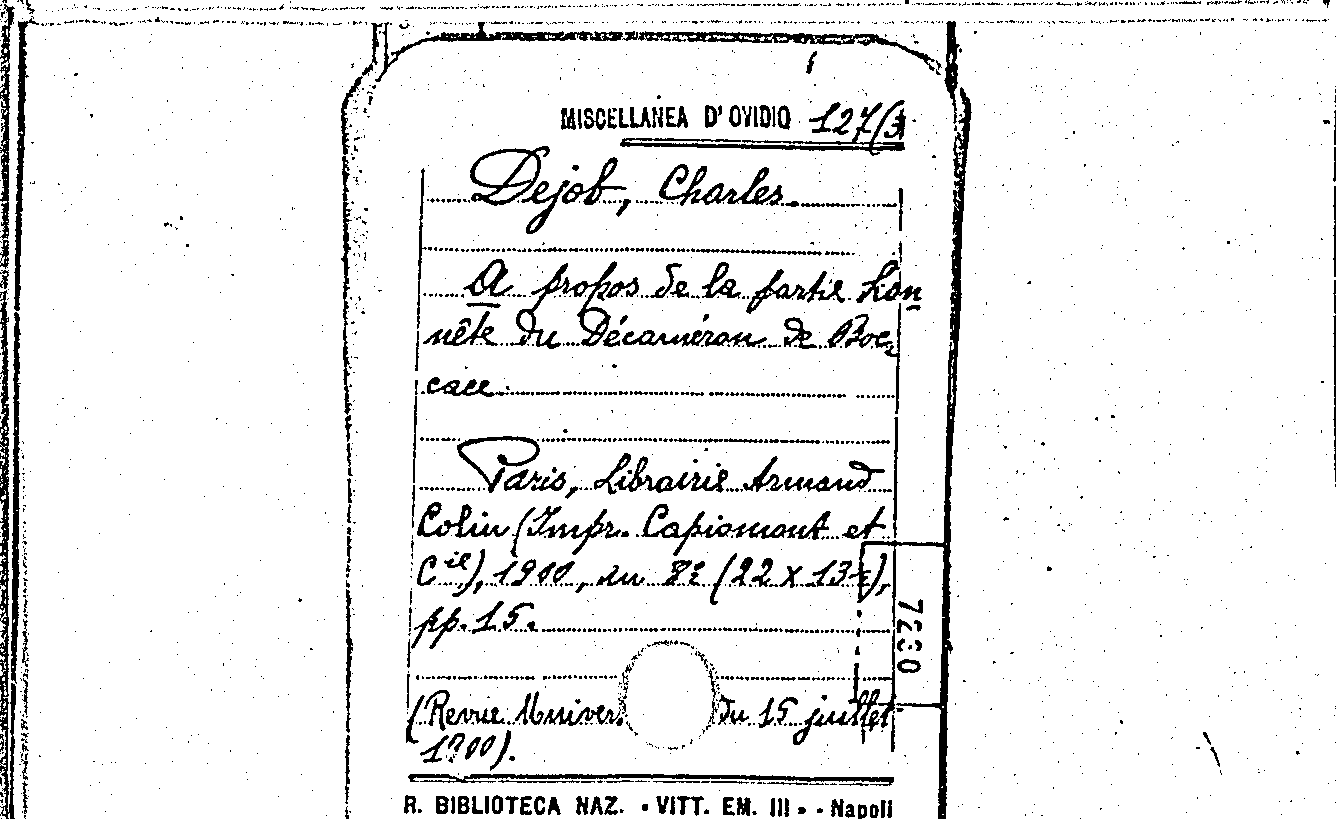 MISCELLANEA D'OVIDIO 127/3
Dejob, Charles.
A propos de la partie hon
nête du Décaméron de Boc
cace.
Paris, Librairie Armand
Colin (Impr. Capiomont et
Cie), 1900, in 8º (22 x 13½),
pp. 15.
(Revue Univer. du 15 juillet
1900).
7230
R. BIBLIOTECA NAZ. • VITT. EM. III • - Napoli